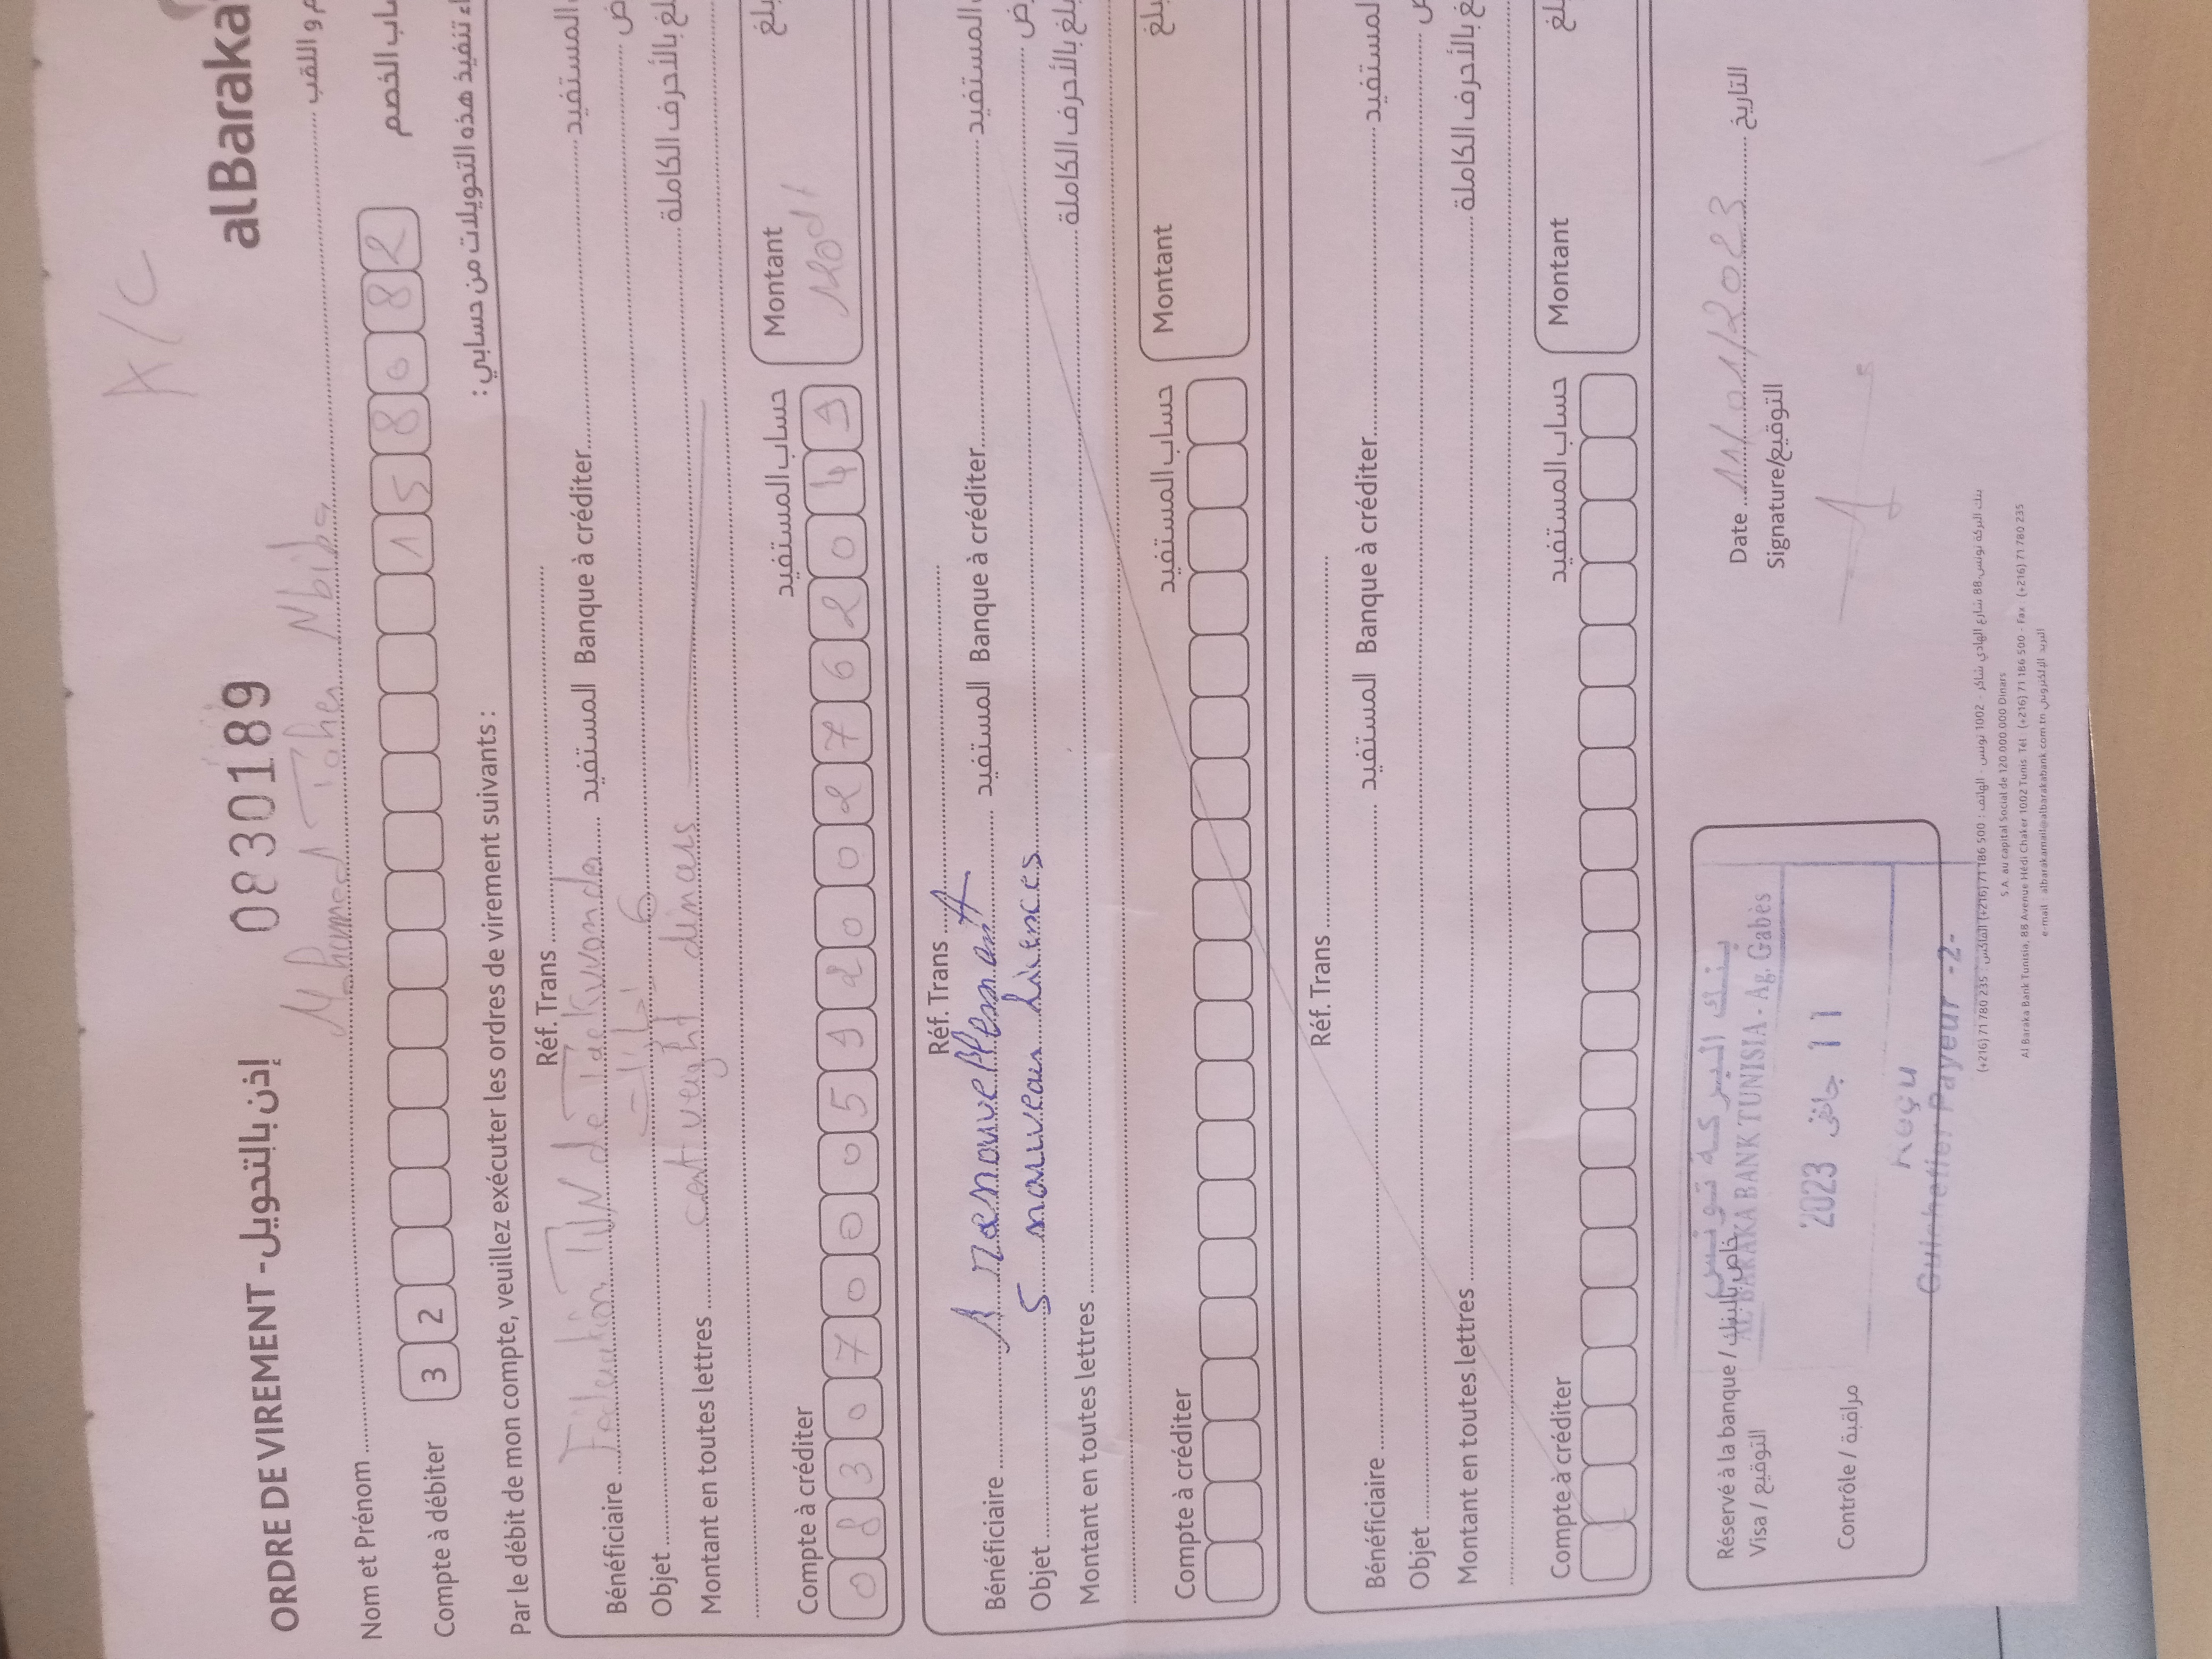 K/C
alBaraka
ORDRE DE VIREMENT - إذن بالتحويل 0830189
Nom et Prénom Mohamed Taher Nbiba م و اللقب
Compte à débiter 3 2 1 5 8 0 8 2 ساب الخصم
Par le débit de mon compte, veuillez exécuter les ordres de virement suivants : اء تنفيذ هذه التحويلات من حسابي :
Réf. Trans
Bénéficiaire Fédération TUN de Taekwondo المستفيد Banque à créditer المستفيد
Objet ض
Montant en toutes lettres cent vingt dinars لغ بالأحرف الكاملة
Compte à créditer حساب المستفيد Montant بلغ
0 8 3 0 7 0 0 0 5 9 2 0 0 2 7 6 2 0 4 9 120dt
Réf. Trans
Bénéficiaire 1 renouvellement المستفيد Banque à créditer المستفيد
Objet 5 nouveau licences ض
Montant en toutes lettres بلغ بالأحرف الكاملة
Compte à créditer حساب المستفيد Montant بلغ
Réf. Trans
Bénéficiaire المستفيد Banque à créditer المستفيد
Objet ض
Montant en toutes lettres غ بالأحرف الكاملة
Compte à créditer حساب المستفيد Montant بلغ
Réservé à la banque / خاص بالبنك
Visa / التوقيع
Contrôle / مراقبة
بنك البركة تونس
AL BARAKA BANK TUNISIA - Ag. Gabès
11 جانفي 2023
Reçu
Guichetier Payeur -2-
Date 11/01/2023 التاريخ
Signature/التوقيع
بنك البركة تونس، 88 شارع الهادي شاكر - 1002 تونس - الهاتف : 500 186 71 (216+) الفاكس : 235 780 71 (216+)
S.A. au capital Social de 120.000.000 Dinars
Al Baraka Bank Tunisia, 88 Avenue Hédi Chaker 1002 Tunis Tél : (+216) 71 186 500 - Fax : (+216) 71 780 235
e-mail : albarakamail@albarakabank.com.tn البريد الإلكتروني